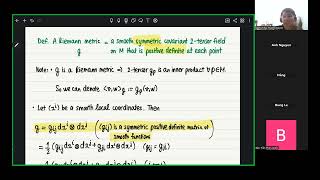 Def. A Riemann metric = a smooth symmetric covariant 2-tensor field
g on M that is positive definite at each point
Note: • g is a Riemann metric ⇒ 2-tensor g_p is an inner product ∀p∈M.
So we can denote <v,w>_g := g_p(v,w)
• Let (x^i) be a smooth local coordinates. Then
g = g_ij dx^i ⊗ dx^j ( (g_ij) is a symmetric positive definite matrix of
smooth functions )
= 1/2 (g_ij dx^i ⊗ dx^j + g_ji dx^i ⊗ dx^j) (g_ij = g_ji)
Anh Nguyen
Hồng
B